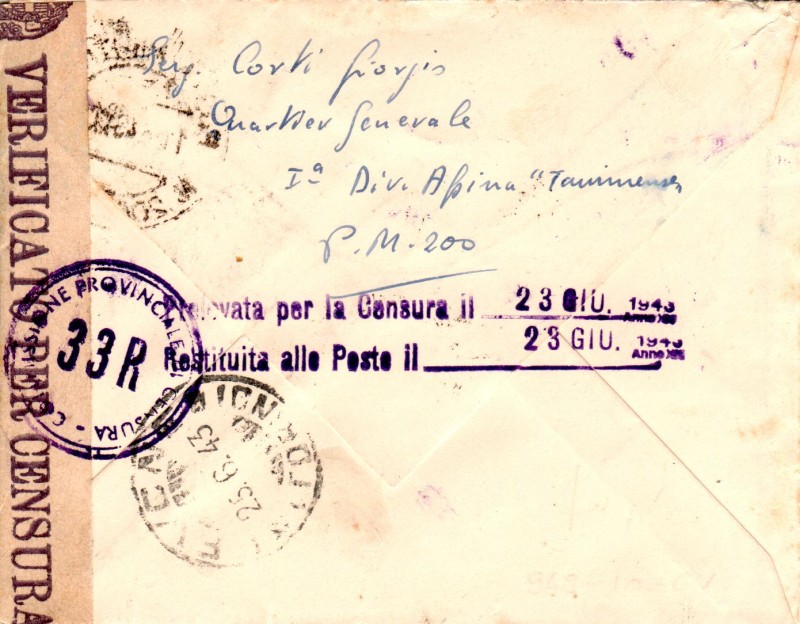 VERIFICATO PER CENSURA
Serg. Corti Giorgio
Quartier Generale
Iª Div. Alpina "Taurinense"
P.M. 200
Prelevata per la Censura il 23 GIU. 1943
Anno XXI
Restituita alle Poste il 23 GIU. 1943
Anno XXI
COMMISSIONE PROVINCIALE DI CENSURA
33R
25.6.43